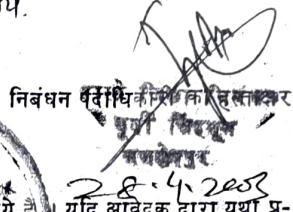 निबंधन पदाधिकारी का हस्ताक्षर
पूर्वी सिंहभूम
जमशेदपुर
28.4.2003
यदि आवेदक द्वारा यथा प्र-